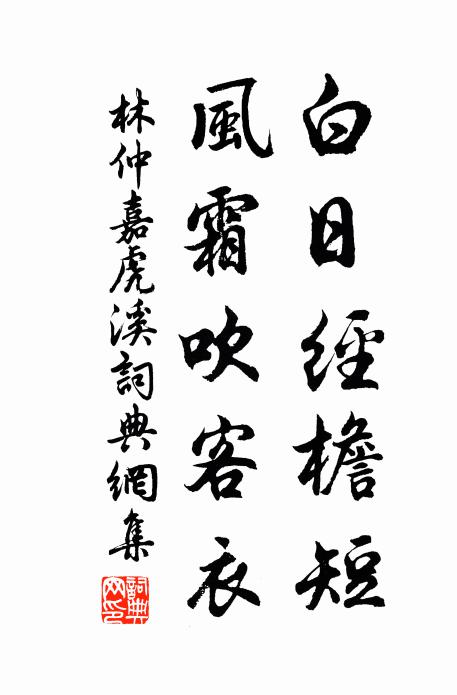 白日經檐短
風霜吹客衣
林仲嘉虎溪詞典網集
詞典网印